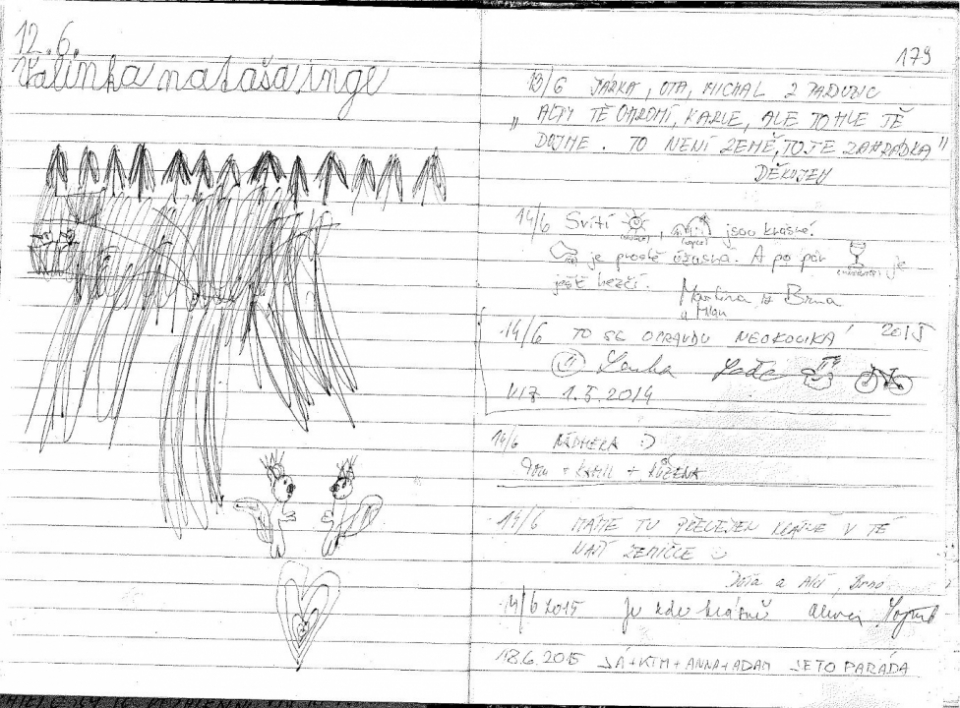 12.6.
Kalinka nataša inge
179
13/6 JARKA, OTA, MICHAL Z PARDUBIC
„ALPY TĚ OHROMÍ, KARLE, ALE TOHLE TĚ
DOJME. TO NENÍ ZEMĚ, TO JE ZAHRÁDKA"
DĚKUJEM
14/6 Svítí , jsou krásné.
je prostě úžasná. A po pár je
ještě hezčí.
Martina z Brna
a Milan
14/6 TO SE OPRAVDU NEOKOUKÁ! 2015
VIZ 1.5.2014
14/6 NÁDHERA :)
+ KAMIL + RŮŽENA
14/6 MÁME TU PŘEVEJEN KRÁSNĚ V TÉ
NAŠÍ ZEMIČCE
a Brno
14/6 2015 Je zde krásně
18.6.2015 JÁ+KIM+ANNA+ADAM JE TO PARÁDA